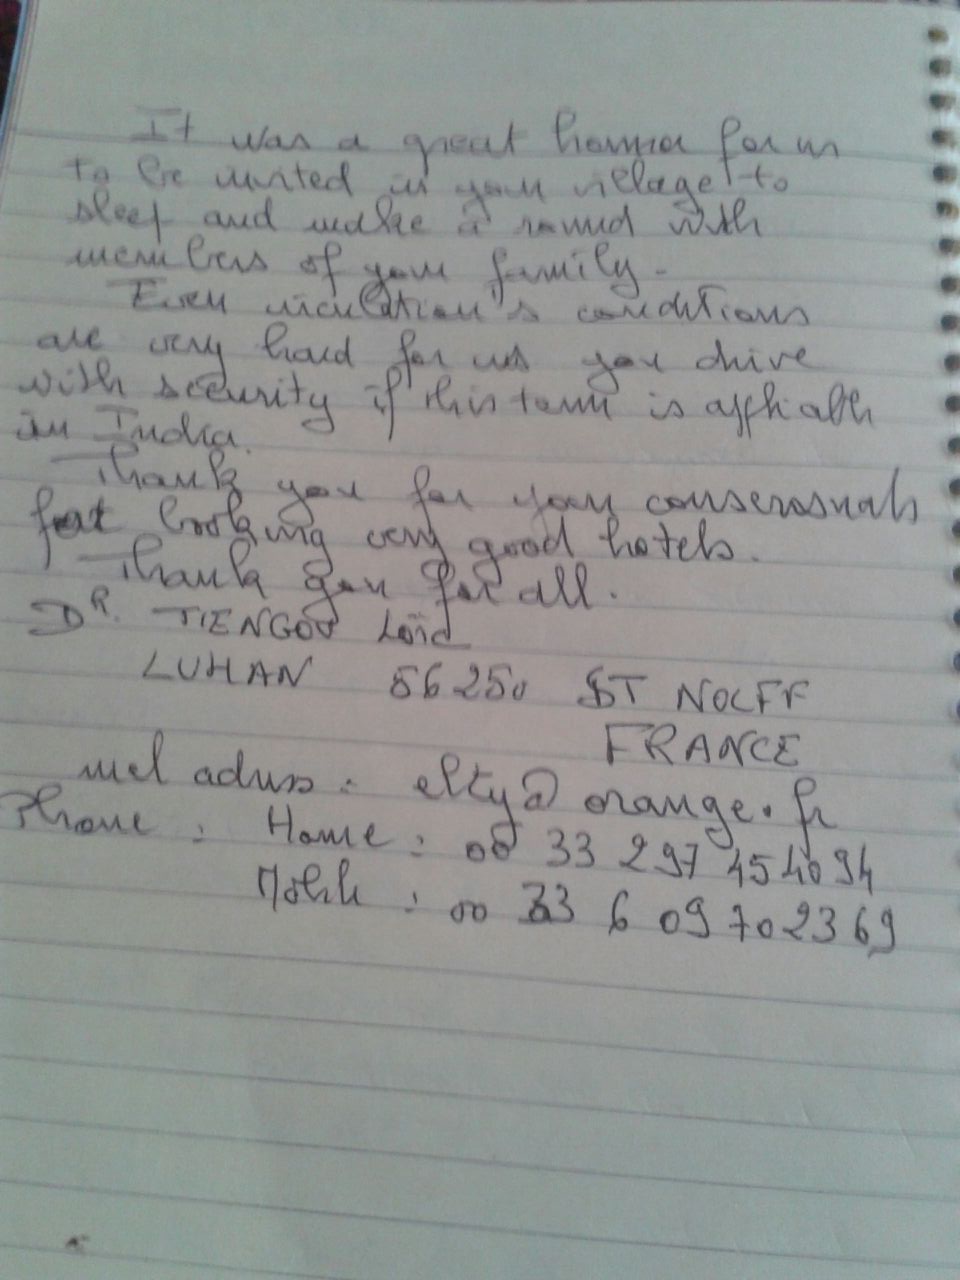 It was a great honnor for us
to be invited in your village to
sleep and make a round with
members of your family.
Even circulation's conditions
are very hard for us you drive
with security if this term is
in India.
Thank you for your
for booking very good hotels.
Thank you for all.
DR. TIENGOU Loïc
LUHAN 56250 ST NOLFF
FRANCE
mel adress : elty@orange.fr
Phone : Home : 00 33 297 454094
Mobile : 00 33 6 09 70 23 69